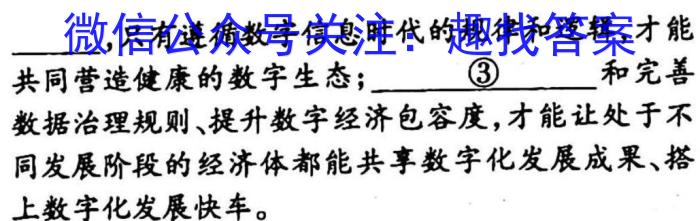 微信公众号关注：趣找答案
____，只有遵循数字信息时代的规律和逻辑，才能
共同营造健康的数字生态；____③____和完善
数据治理规则、提升数字经济包容度，才能让处于不
同发展阶段的经济体都能共享数字化发展成果、搭
上数字化发展快车。